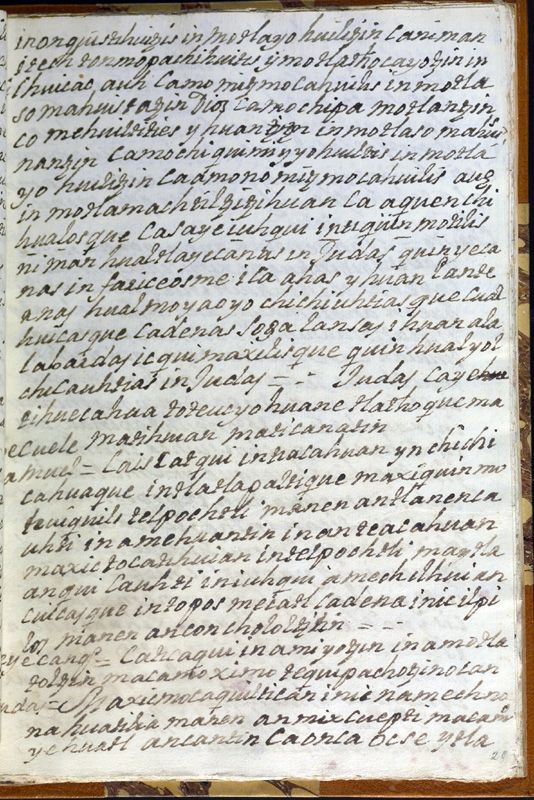 inonquistihuitzis inmotlayohuilitzin caniman
itechtonmopachihuitis y motlathocayotzin in
Ilhuicac, auh camo mitzmocahuilis inmotla
somahuistatzin Dios camochipa motlantzin
co mehuildities yhuantzin inmotlasomahuis
nantzin camochiquimiyyohuiltis inmotla
yohuilitzin caamono mitzmocahuilis auh
in motlamachtiltzitzihuan ca aquenchi
hualosque casayeiuhqui intequih motilis
niman hualtlayecanas in Judas quinyeca
nas in fariceosme ita anas yhuan tante
anas hualmoyaoyochichiuhtias que cual
huicasque cadenas soga lansas ihuan ala
labardas ic quimaxilisque quinhualyol
chicauhtias in Judas = Judas caye
tihuecahua toteucyohuane tlathoque ma
cuele matihuian maticanatin
amuel = Caistatqui intiacahuan yn chichi
cahuaque intlatlapaltique maxiquinmo
huiquilis telpochtli manen antlanenca
uhti in amehuantin inanteacahuan
maxictocatihuian intelpochtli maytla
anqui cauhti iniuhqui amechilhuian
cuicasque intopos metatl cadena inic ilpi
los manen anconchololtizin =
cang.e = Catcaqui inamiyotzin in amotla
toltzin macamo ximotequipachotzinocan
udas = Maxicmocaquilticaninic namechno
nahuatilia manen anmixcuepti macamo
yehuatl ancantin caonca ocse ytla
20